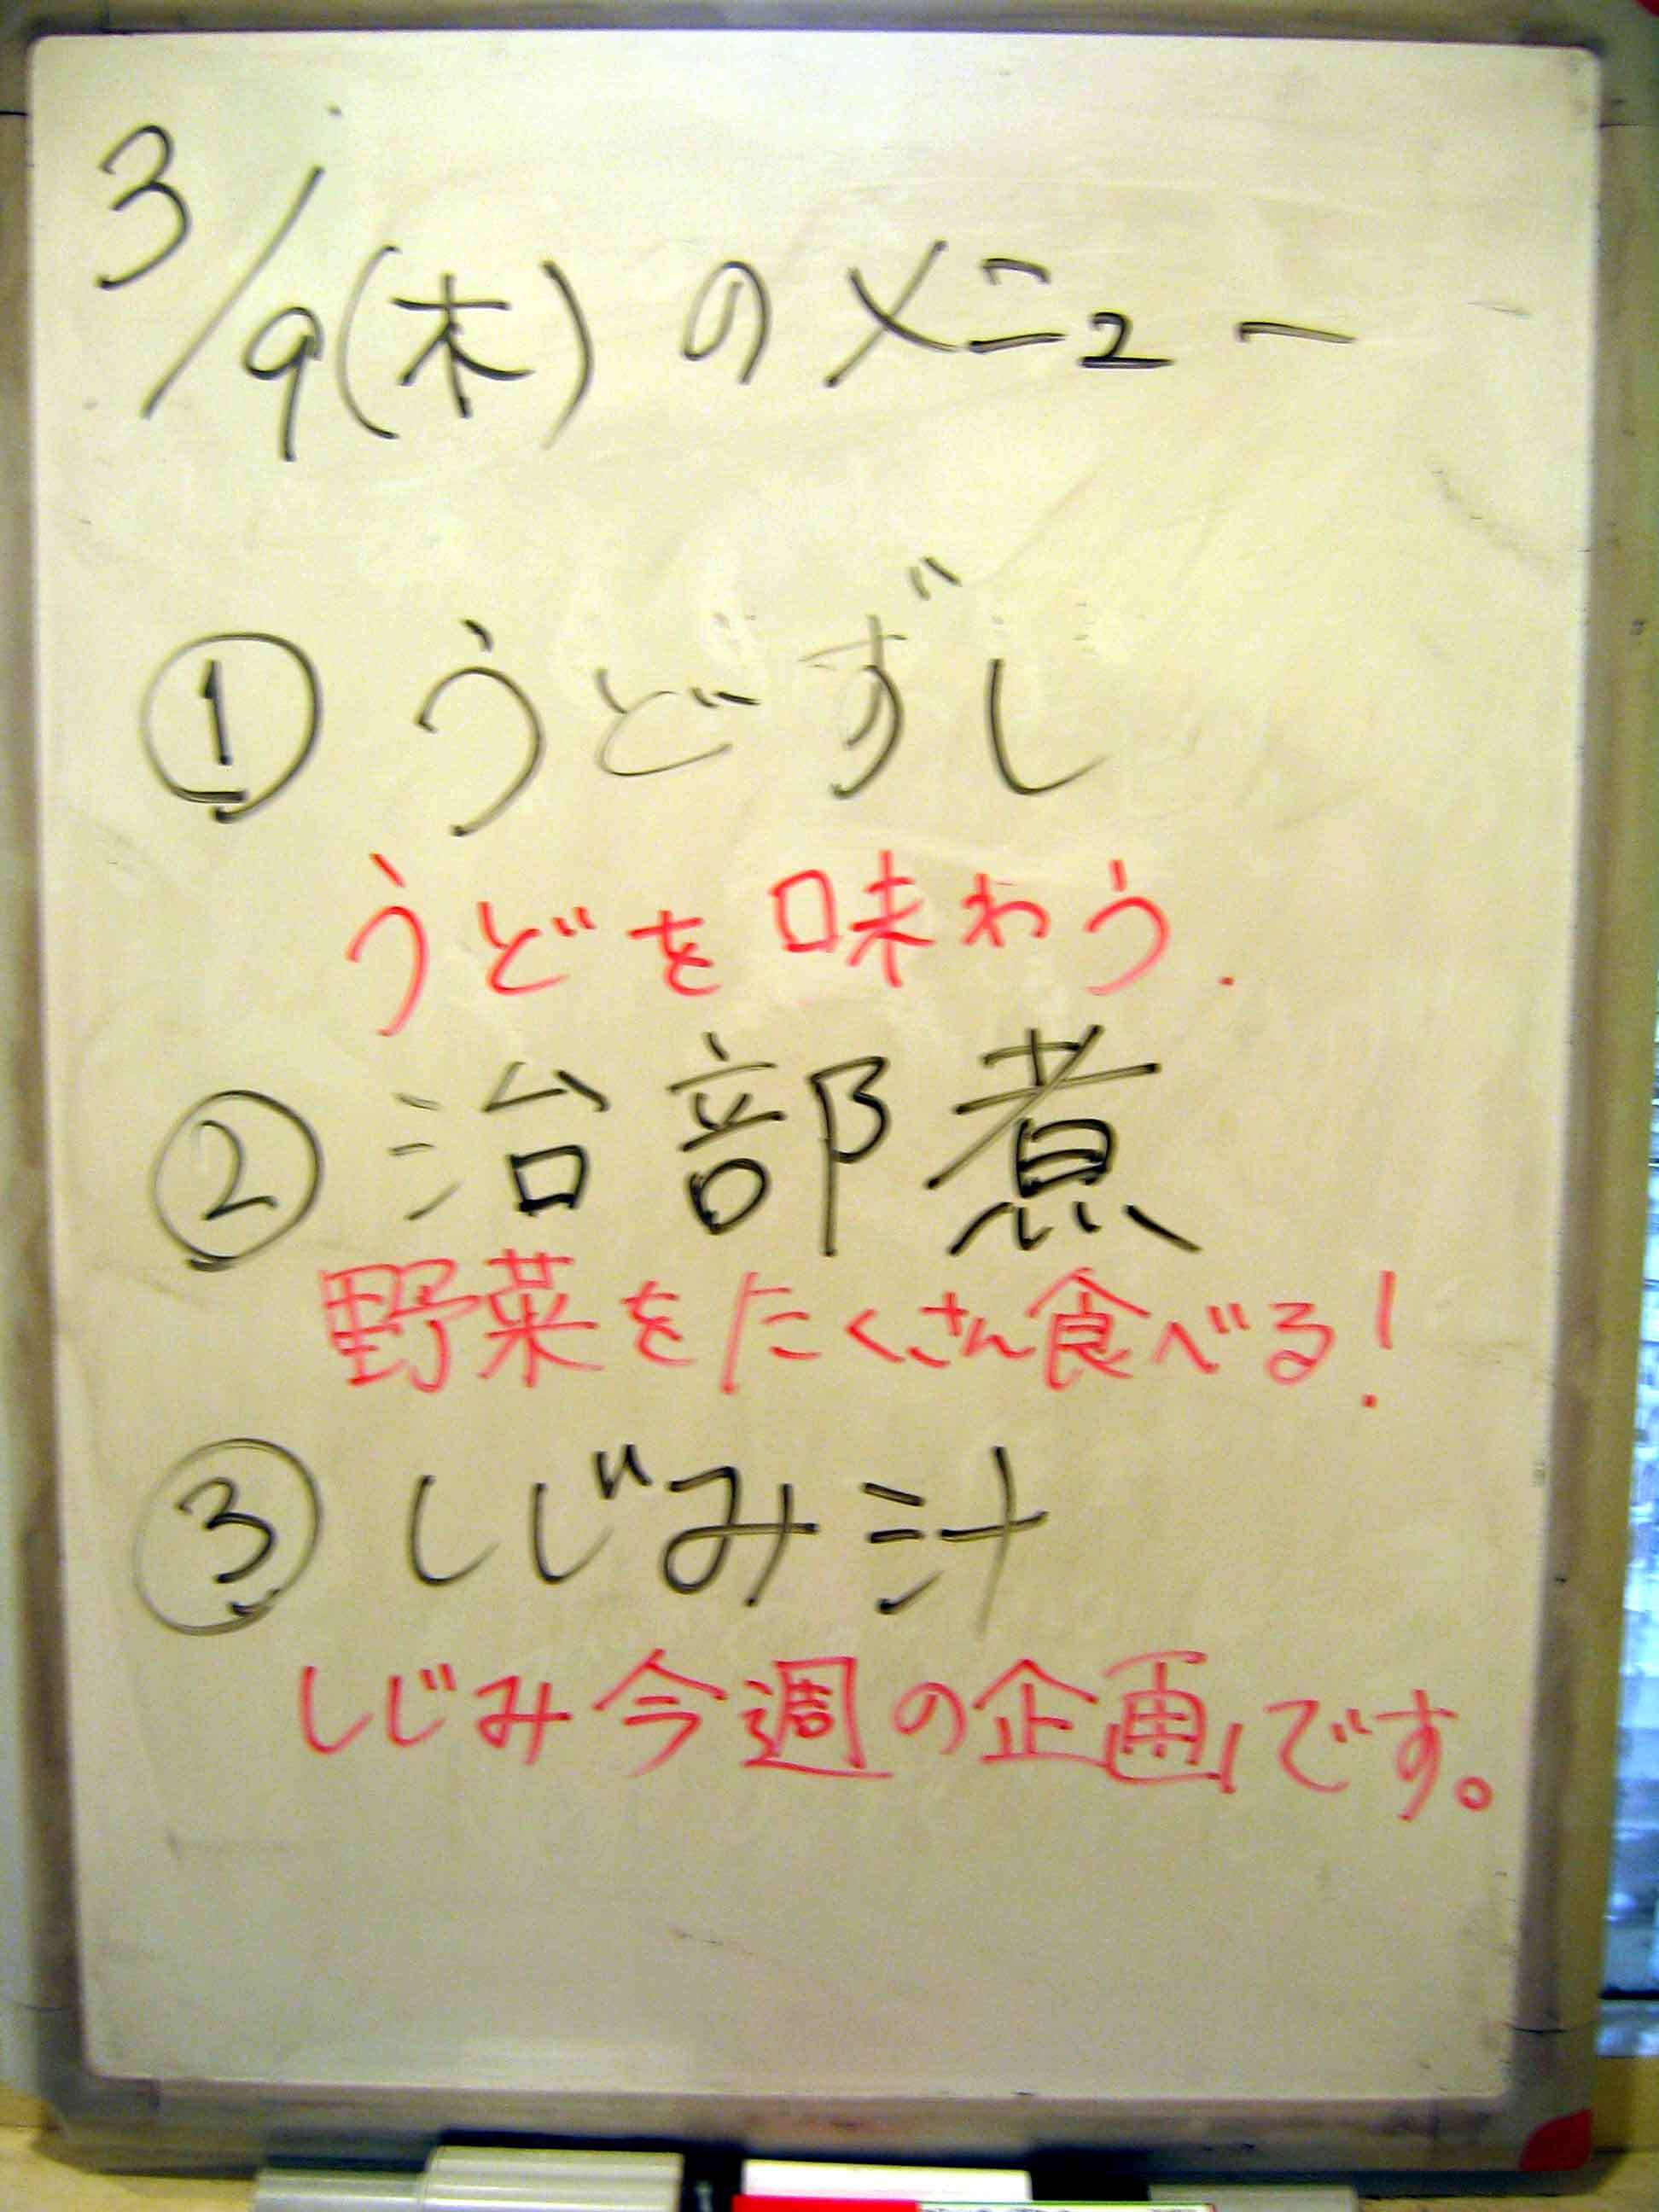 3/9(木)のメニュー
① うどずし
うどを味わう.
② 治部煮
野菜をたくさん食べる!
③ しじみ汁
しじみ今週の企画です。